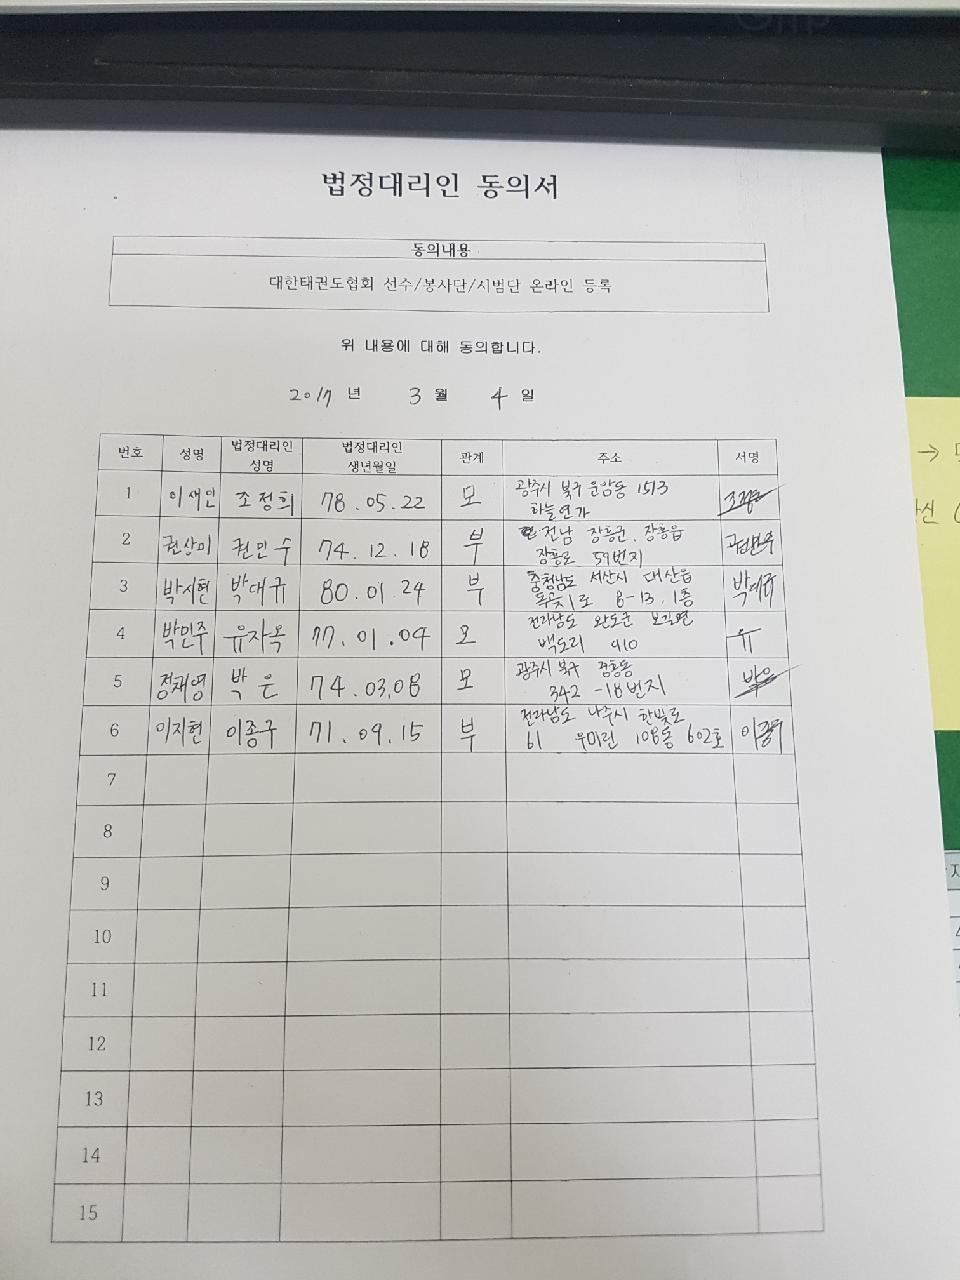 법정대리인 동의서
동의내용
대한태권도협회 선수/봉사단/시범단 온라인 등록
위 내용에 대해 동의합니다.
2017 년 3 월 4 일
번호 성명 법정대리인 성명 법정대리인 생년월일 관계 주소 서명
1 이새인 조정희 78.05.22 모 광주시 북구 운암동 1513
하늘연가
2 권상미 권민수 74.12.18 부 전남 장흥군 장흥읍
장흥로 59번지
3 박시현 박대규 80.01.24 부 충청남도 서산시 대산읍
1로 8-13, 1층 박대규
4 박민주 유자옥 77.01.04 모 전라남도 완도군 보길면
백도리 910 유
5 정재영 박은 74.03.08 모 광주시 북구 중흥동
342-18번지 박은
6 이지현 이종구 71.09.15 부 전라남도 나주시 한빛로
61 우미린 108동 602호
7
8
9
10
11
12
13
14
15